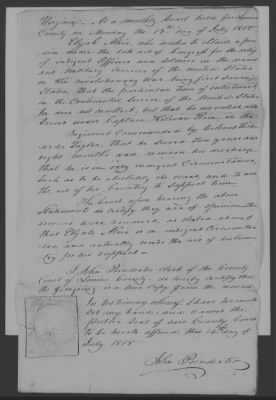 Virginia. At a monthly Court held for Louisa
County on Monday the 13th day of July 1818
Elijah Alvis, who wishes to obtain a pen-
sion under the late act of Congress for the relief
of indigent Officers and Soldiers in the land
and Military Service of the United States
in the revolutionary War being first sworn
States, that the particular time of enlistment
in the Continental Service of the United States
he does not recollect, but that he enlisted and
served under Captain
Regiment Commanded by Colonel
Taylor, that he served two years and
eight months and received his discharge,
that he is in very indigent Circumstances,
such as to be absolutely in want, and to need
the aid of his Country to support him.
The Court upon hearing the above
Statement do certify they are of opinion the
services were rendered as stated above
that Elijah Alvis is in indigent Circumstan-
ces, and actually needs the aid of his Coun-
try for his support
I John Poindexter Clerk of the County
Court of Louisa County do hereby certify that
the foregoing is a true Copy from the record.
In testimony whereof I have hereunto
set my hand, and caused the
public Seal of said County Court
to be hereto affixed this
July 1818
John Poindexter